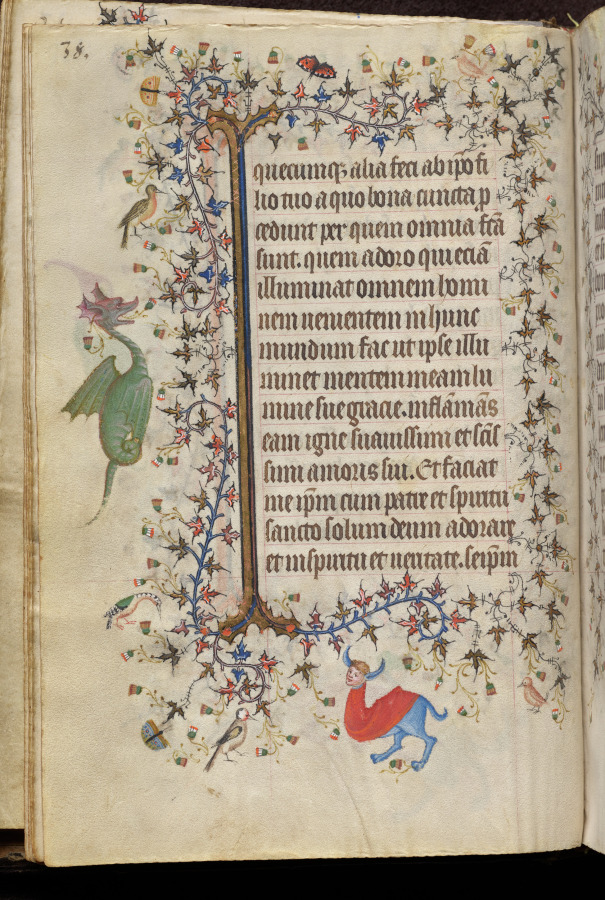 38.
quecumqꝫ alia feci ab ipo fi
lio tuo a quo bona cuncta p
cedunt per quem omnia fcā
sunt. quem adoro qui eciā
illuminat omnem homi
nem uenientem in hunc
mundum fac ut ipse illu
minet mentem meam lu
mine sue gracie. inflāmās
eam igne suauissimi et scīs
simi amoris sui. Et faciat
me ip̄m cum patre et spiritu
sancto solum deum adorare
et in spiritu et ueritate. seip̄m